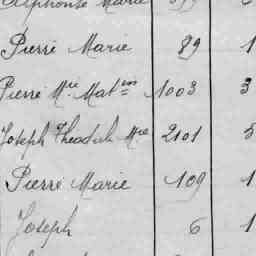 Alphonse Marie
Pierre Marie 89 1
Pierre Mie Mat en 1003 3
Joseph Theodule Mie 2101 5
Pierre Marie 109 1
Joseph 6 1